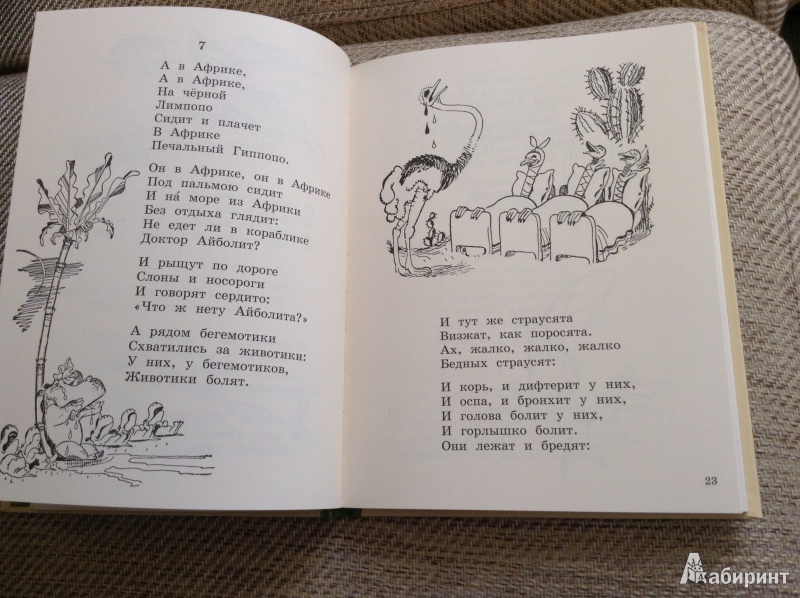 7
А в Африке,
А в Африке,
На чёрной
Лимпопо
Сидит и плачет
В Африке
Печальный Гиппопо.
Он в Африке, он в Африке
Под пальмою сидит
И на́ море из Африки
Без отдыха глядит:
Не едет ли в кораблике
Доктор Айболит?
И рыщут по дороге
Слоны и носороги
И говорят сердито:
«Что ж нету Айболита?»
А рядом бегемотики
Схватились за животики:
У них, у бегемотиков,
Животики болят.
И тут же страусята
Визжат, как поросята.
Ах, жалко, жалко, жалко
Бедных страусят:
И корь, и дифтерит у них,
И оспа, и бронхит у них,
И голова болит у них,
И горлышко болит.
Они лежат и бредят:
23
Лабиринт